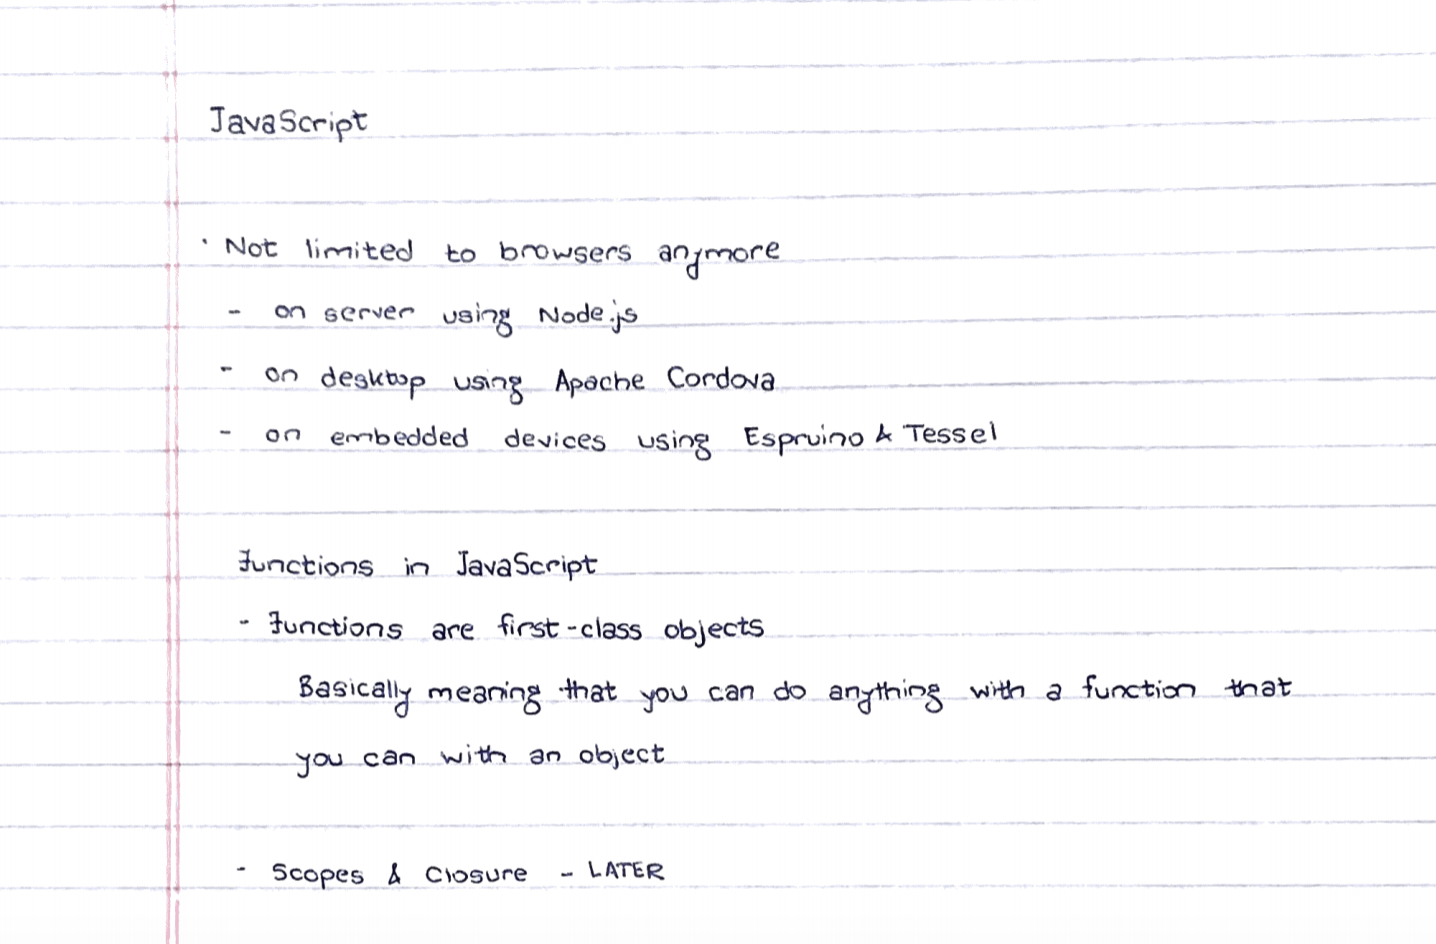 JavaScript
· Not limited to browsers anymore
- on server using Node.js
- on desktop using Apache Cordova
- on embedded devices using Espruino & Tessel
Functions in JavaScript
- Functions are first-class objects
Basically meaning that you can do anything with a function that
you can with an object
- Scopes & Closure - LATER